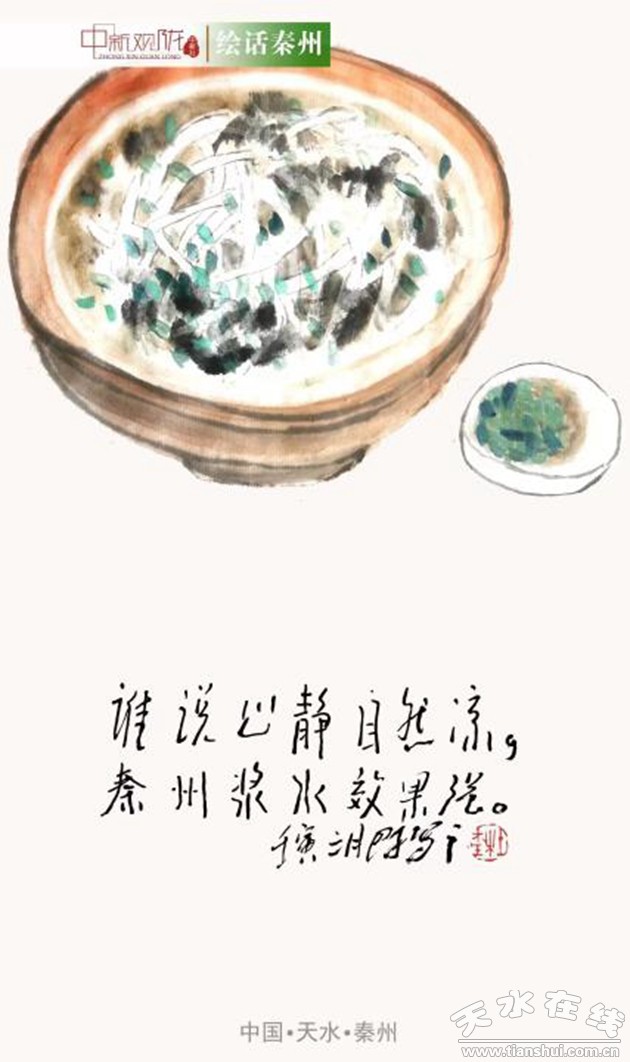 中新观陇
ZHONG XIN GUAN LONG
绘话秦州
谁说心静自然凉,
秦州浆水效果强。
壬寅二月
中国·天水·秦州
天水在线
www.tianshui.com.cn